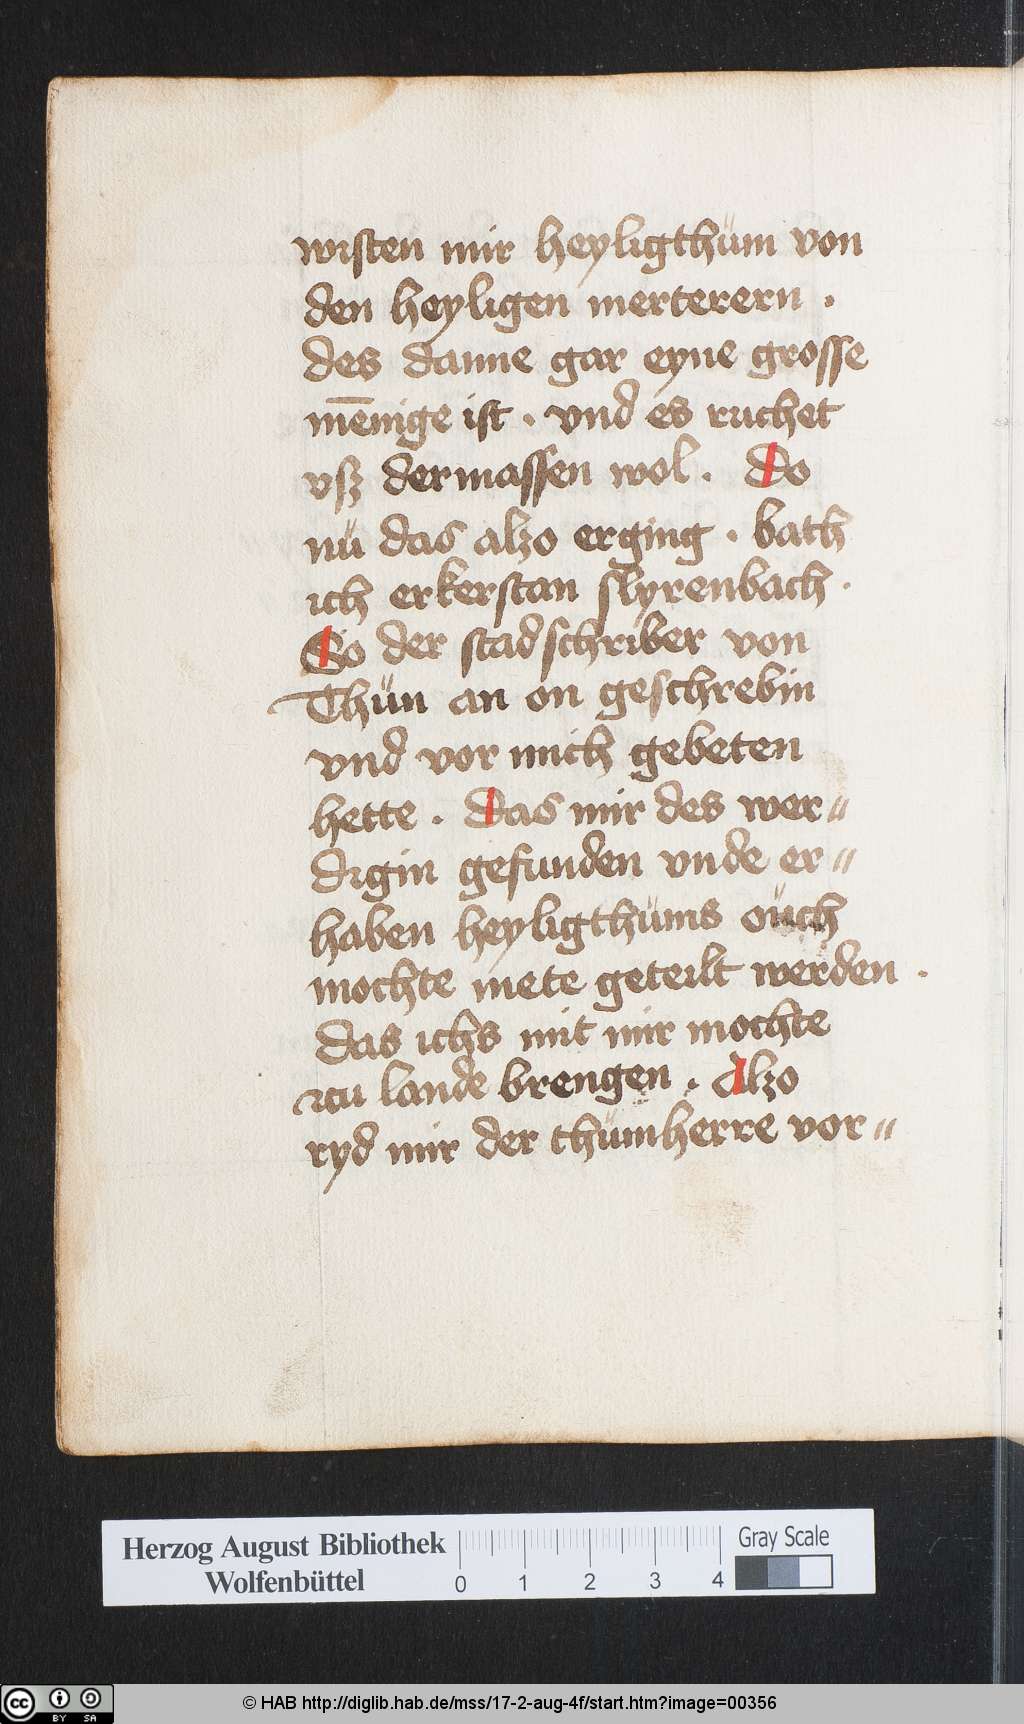 wisten mir heyligthüm von
den heyligen merterern .
des danne gar eyne grosse
mēnige ist . vnd es ruchet
vß dermassen wol . Do
nü das alzo erging . bath
ich er kerstan slyrenbach .
So der stadschriber von
Thün an on geschrebin
vnd vor mich gebeten
hette . Das mir des wer〃
digin gefunden vnde er〃
haben heyligthüms oüch
mochte mete geteilt werden .
das ichs mit mir mochte
zcu lande brengen . Alzo
ryd mir der thümherre vor〃
Herzog August Bibliothek
Wolfenbüttel
0 1 2 3 4
Gray Scale
cc BY SA
© HAB http://diglib.hab.de/mss/17-2-aug-4f/start.htm?image=00356